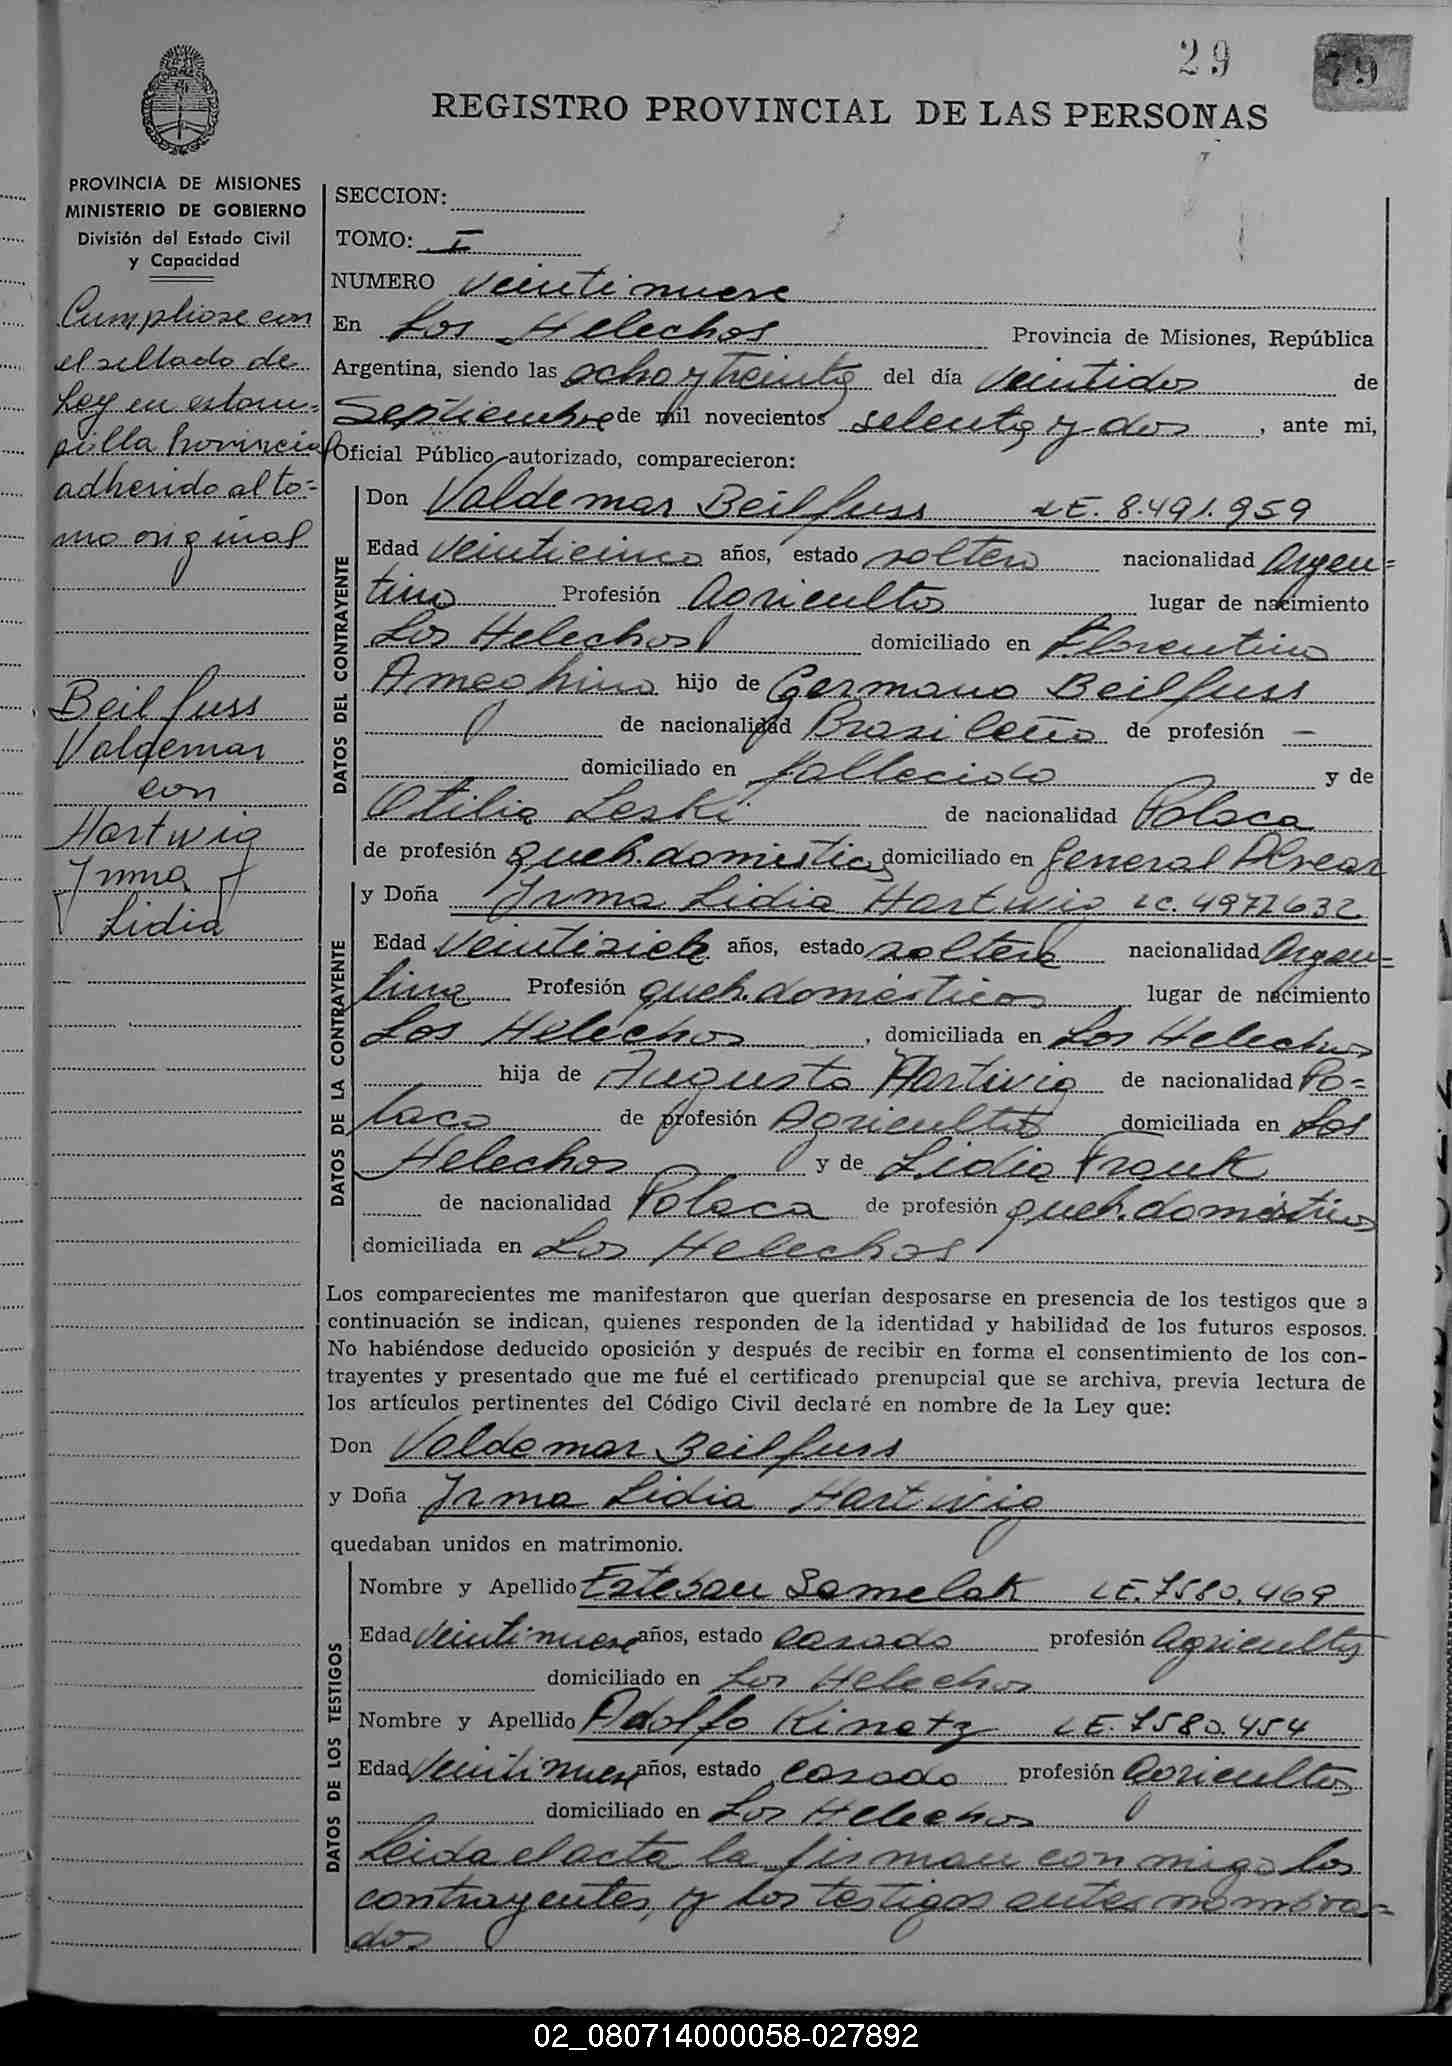 29
79
REGISTRO PROVINCIAL DE LAS PERSONAS
PROVINCIA DE MISIONES
MINISTERIO DE GOBIERNO
División del Estado Civil
y Capacidad
Cumpliose con
el sellado de
Ley en estam=
pilla Provincial
adherido al to=
mo original
Beilfuss
Valdemar
con
Hartwig
Irma
Lidia
SECCION:
TOMO: I
NUMERO Veintinueve
En Los Helechos Provincia de Misiones, República
Argentina, siendo las ocho y treinta del día Veintidos de
Septiembre de mil novecientos setenta y dos, ante mi,
Oficial Público autorizado, comparecieron:
DATOS DEL CONTRAYENTE
Don Valdemar Beilfuss LE. 8.491.959
Edad Veinticinco años, estado soltero nacionalidad Argen=
tino Profesión Agricultor lugar de nacimiento
Los Helechos domiciliado en Florentino
Ameghino hijo de Germano Beilfuss
de nacionalidad Brasileño de profesión —
domiciliado en fallecido y de
Otilia Leski de nacionalidad Polaca
de profesión queh. domestico domiciliado en General Alvear
DATOS DE LA CONTRAYENTE
y Doña Irma Lidia Hartwig LC. 4972632
Edad Veintisiete años, estado soltera nacionalidad Argen=
tina Profesión queh. domésticos lugar de nacimiento
Los Helechos, domiciliada en Los Helechos
hija de Augusto Hartwig de nacionalidad Po=
laco de profesión Agricultor domiciliada en Los
Helechos y de Lidia Frank
de nacionalidad Polaca de profesión queh. domésticos
domiciliada en Los Helechos
Los comparecientes me manifestaron que querían desposarse en presencia de los testigos que a
continuación se indican, quienes responden de la identidad y habilidad de los futuros esposos.
No habiéndose deducido oposición y después de recibir en forma el consentimiento de los con-
trayentes y presentado que me fué el certificado prenupcial que se archiva, previa lectura de
los artículos pertinentes del Código Civil declaré en nombre de la Ley que:
Don Valdemar Beilfuss
y Doña Irma Lidia Hartwig
quedaban unidos en matrimonio.
DATOS DE LOS TESTIGOS
Nombre y Apellido Esteban Samelak LE. 7580.469
Edad Veintinueve años, estado casado profesión Agricultor
domiciliado en Los Helechos
Nombre y Apellido Adolfo Kinetz LE. 7580.454
Edad Veintinueve años, estado casado profesión Agricultor
domiciliado en Los Helechos
Leida el acta la firman conmigo los
contrayentes, y los testigos antes nombra=
dos
02_080714000058-027892